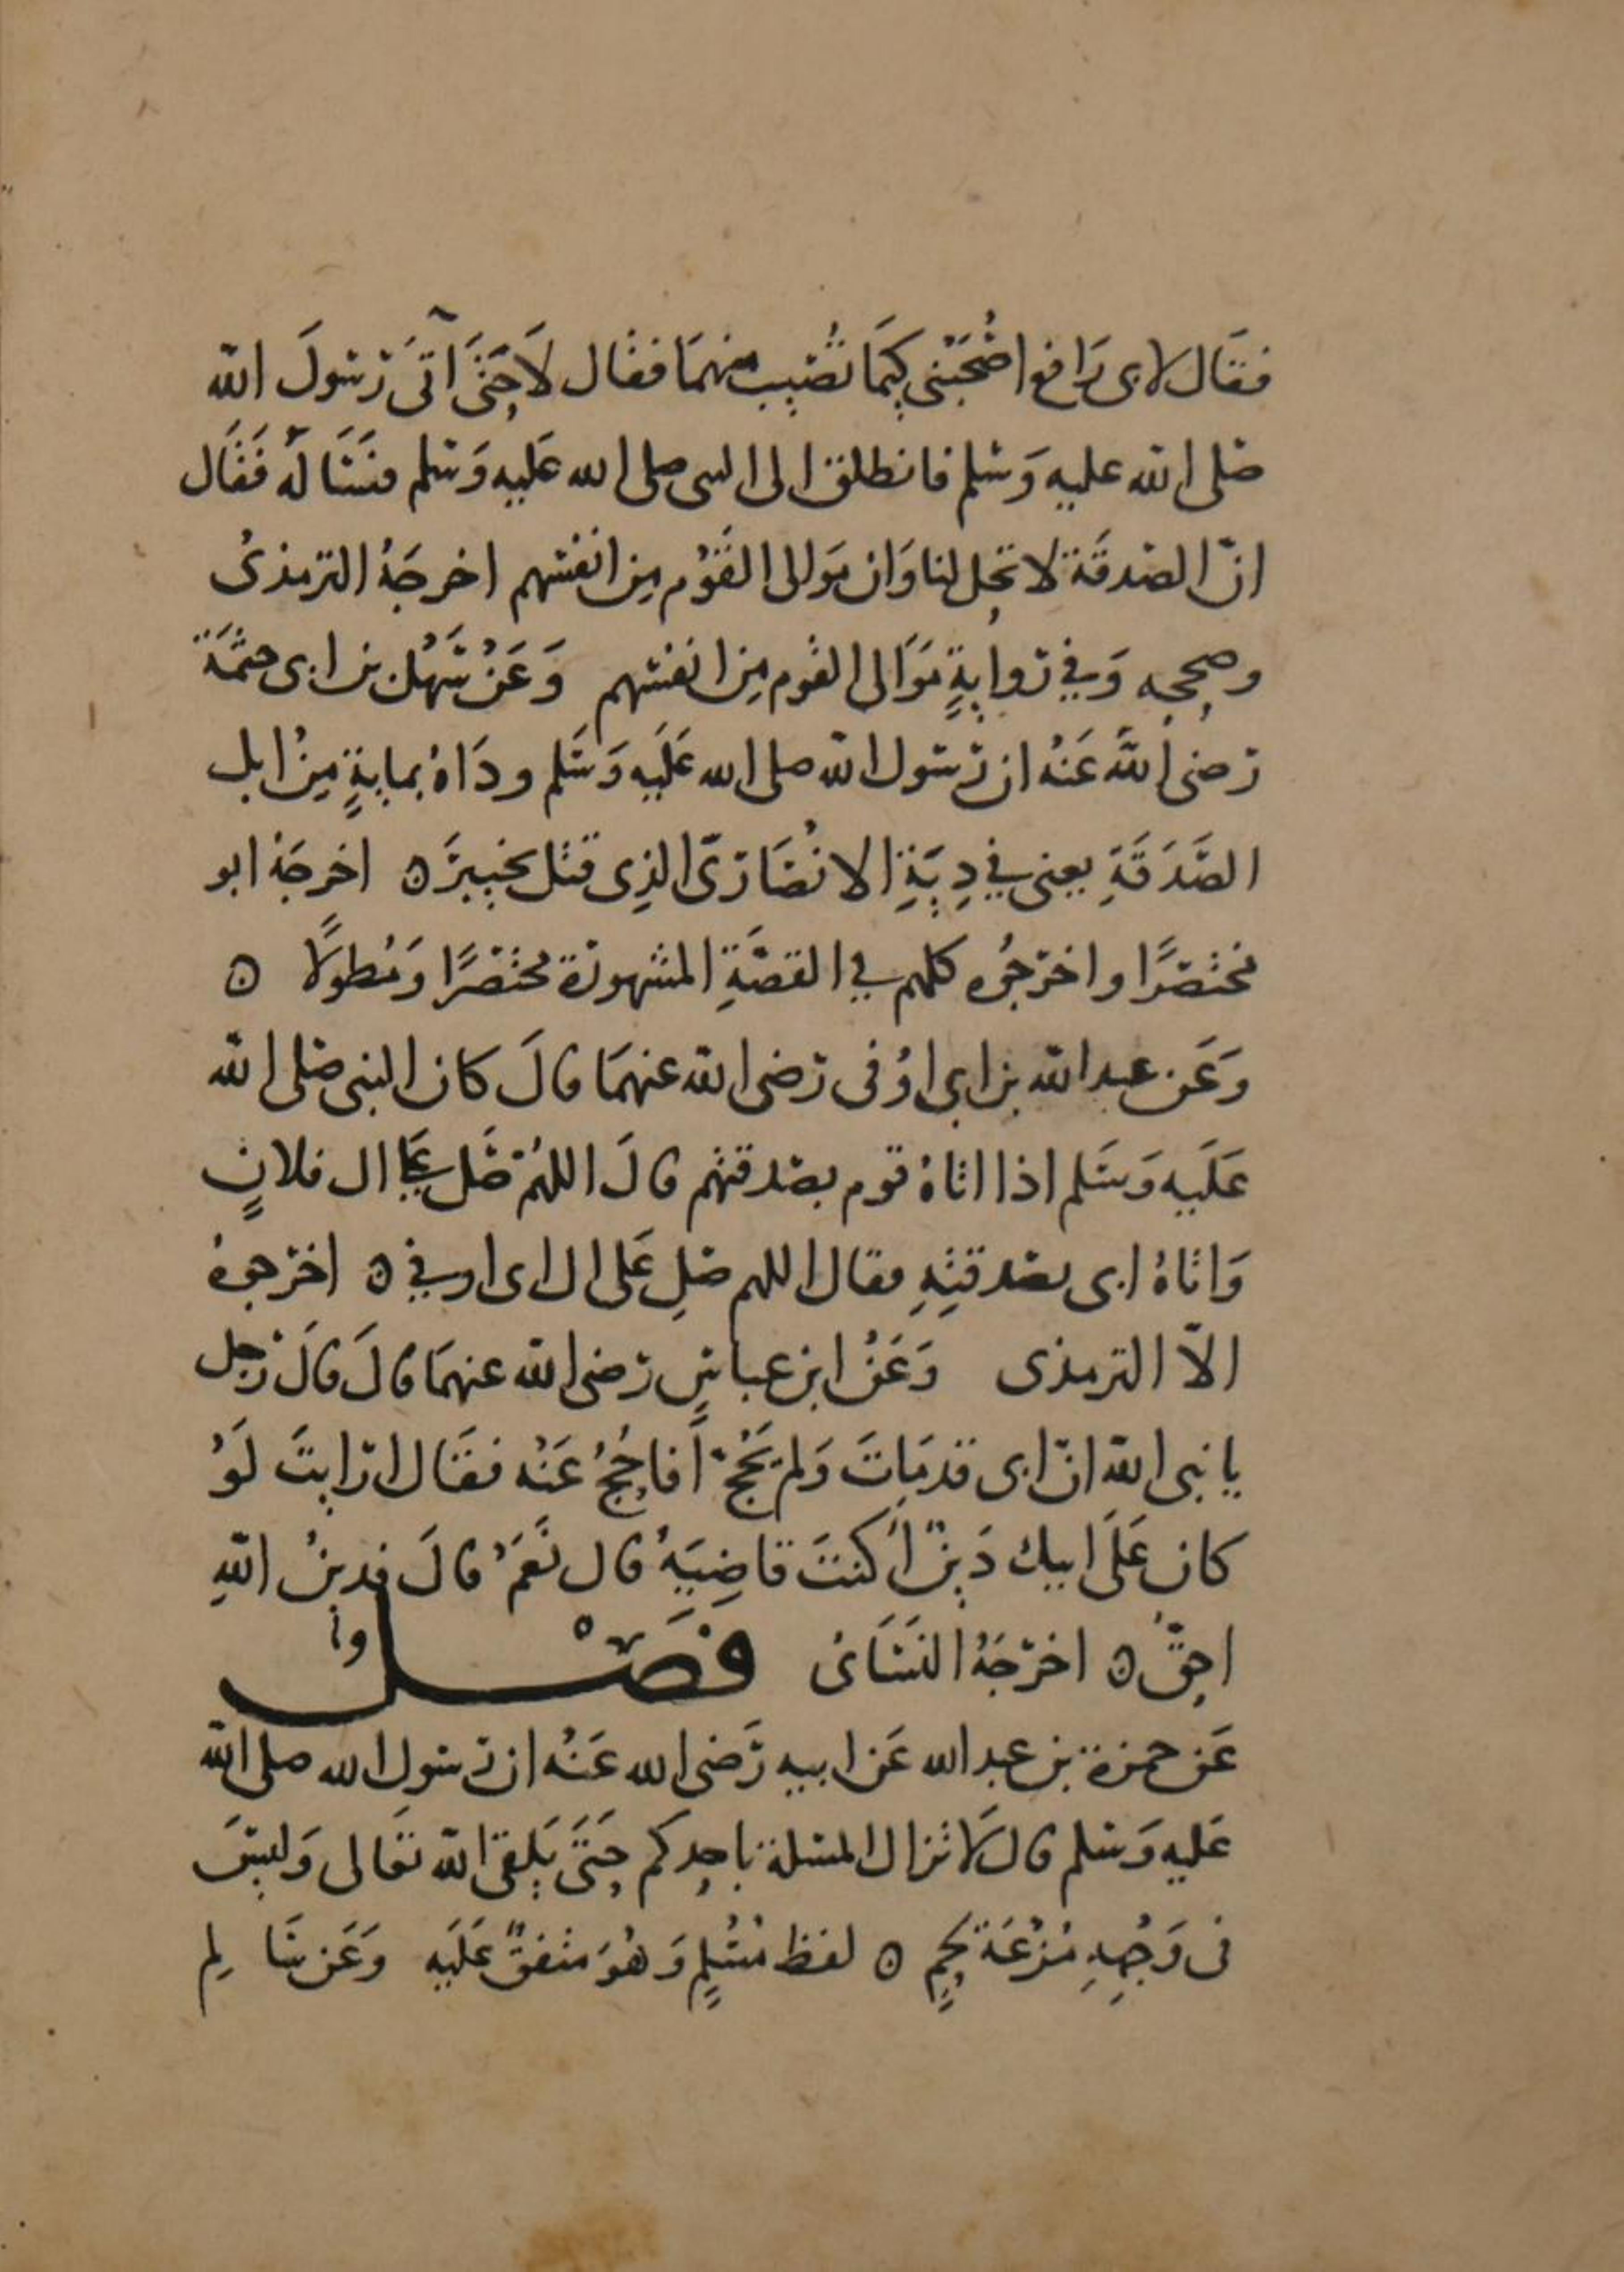 فقَال لابى رَافع اصْحَبْنى كيمَا تصُيب منهمَا فقال لاَ حَتىَّ آتىَ رَسُولَ الله
صلى الله عليه وَسَلم فانطلق الى النبى صلى الله عَليه وَسَلم فسَأَلَهُ فَقَال
انّ الصَدقَة لا تحِل لنا وَان مَوالى القَوْم مِن انفسهم اخرجَهُ الترمذىُ
وصححه وَفي روايةٍ مَوَالى القوم مِن انفسهم وَعَنْ سَهْل بن ابى حثمَة
رَضى اللهُ عَنْهُ ان رَسُول الله صلى الله عَلَيه وَسَلم ودَاهُ بمايةٍ مِنْ ابل
الصَّدَقَةِ يعنى في دِيَةِ الانْصَارىّ الذِى قتل بخيبرَ ۞ اخرجَهُ ابو
مختصَرًا واخرَجُوه كلهم في القصَّةِ المشهورَة مختصَرًا وَمُطولاً ۞
وَعَن عبد الله بن ابى اوْفى رَضى الله عنهمَا قالَ كان النبى صَلى الله
عَلَيهِ وَسَلم اذا اتاهُ قوم بصَدقتهم قالَ اللهُمّ صَل عَلى ال فلانٍ
وَاتاهُ ابى بصَدقتِهِ فقال اللهم صَلِ عَلى ال ابى اوفي ۞ اخرَجوهُ
الاّ الترمذى وَعَنْ ابن عباسٍ رَضى الله عنهمَا قالَ قالَ رَجل
يا نبى الله انّ ابى قد مَاتَ وَلمْ يَحُجّ أَفاحُجُّ عَنْه فقَال ارَايتَ لَوْ
كان عَلَى ابيك دَيْنٌ أَكنتَ قاضِيَهُ قال نَعَمْ قالَ فدينُ اللهِ
احقّ ۞ اخرَجَهُ النَسَائى فَصْــل
عَن حمزة بن عبد الله عَن ابيه رَضى الله عَنْه ان رَسُول الله صلى الله
عَليه وَسَلم قال لاَ تزال المسئلة باحدِكم حَتىَّ يَلقى الله تعَالى وَليسَ
فى وَجْهِهِ مُزْعَة لحمٍ ۞ لفظ مُسْلمٍ وَهُوَ متفقٌ عَلَيه وَعَن سَا لِم